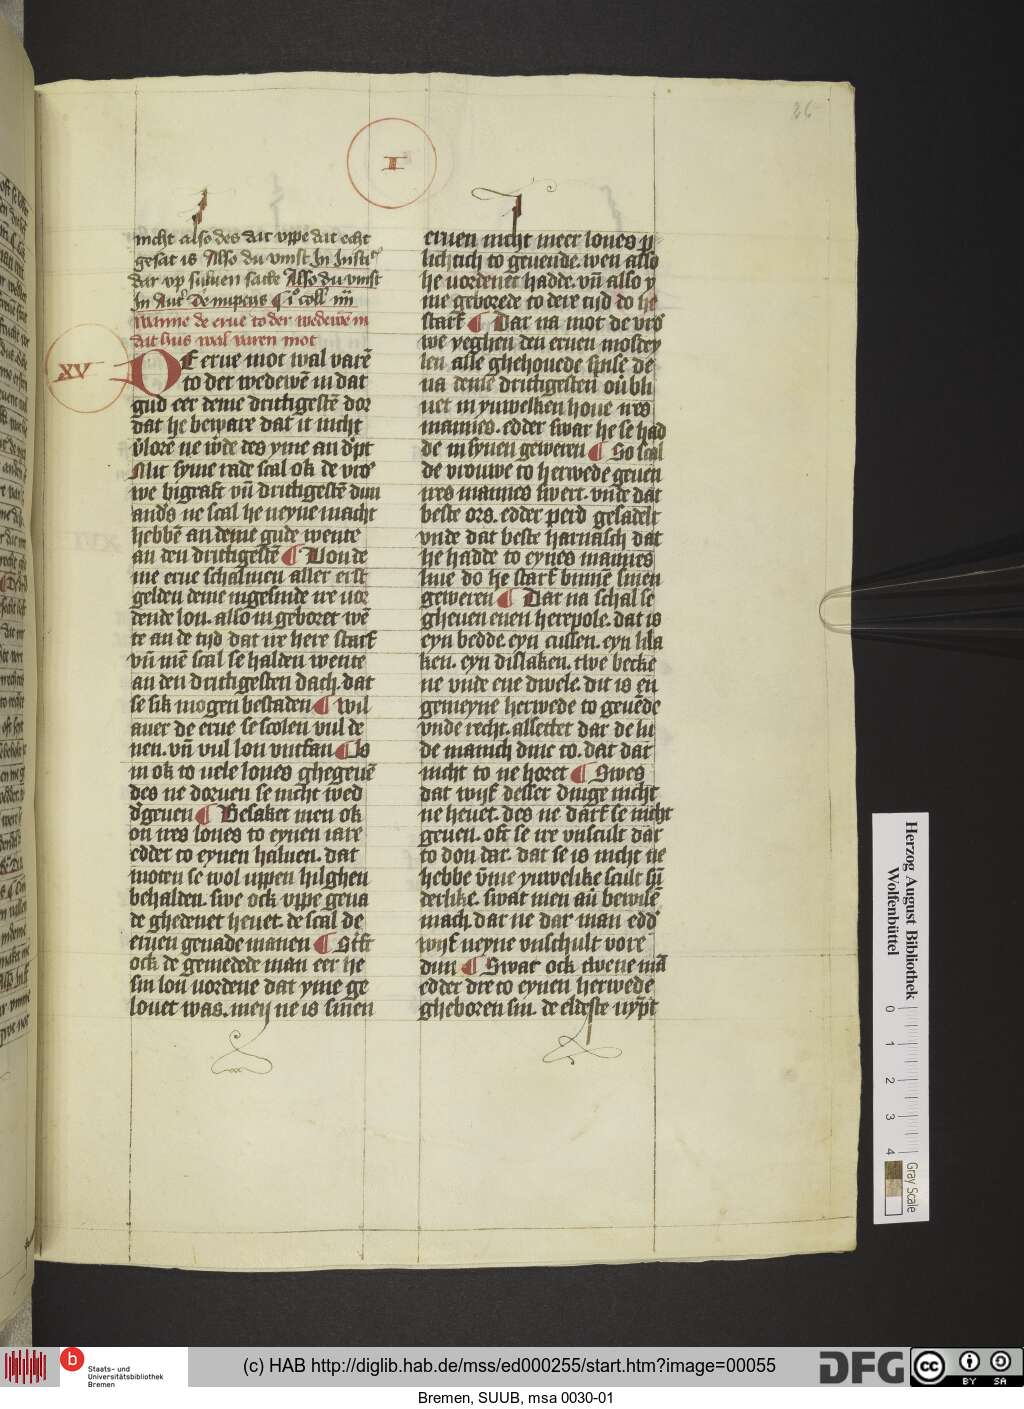 36
I
nicht also des dat vppe dat echt
gesat is Also du vinst In Insti
dar vp suluen sacke Also du vinst
In Aut de nupciis ¶ i coll iiii
wanne de erue to der wedewē in
dat hus wal varen mot
XV
DE erue mot wal varē
to der wedewē in dat
gud eer deme drittigestē dor
dat he beware dat it nicht
vlore ne w̄de des yme an dript
Mit syme rade scal ok de vro
we bigraft vn̄ drittigestē dun
anders ne scal he neyne macht
hebbē an deme gude wente
an den drittigestē ¶ Von de
me erue schalmen aller erst
gelden deme ingesinde ire uor
dende lon. also in geboret wē
te an de tijd dat ire here starf
vn̄ mē scal se halden wente
an den drittigesten dach. dat
se sik mogen bestaden ¶ wil
auer de erue se scolen vul de
nen. vn̄ vul lon vntfan ¶ Is
in ok to uele lones ghegeuē
des ne doruen se nicht wed
dgeuen ¶ Besaket men ok
on ires lones to eynen iare
edder to eynen haluen. dat
moten se wol uppen hilghen
behalden. swe ock vppe gena
de ghedenet heuet. de scal de
eruen genade manen ¶ Stift
ock de gemedede man eer he
sin lon uordene dat yme ge
louet was. men ne is sinen
eruen nicht meer lones p
lichtich to geuende. wen also
he uordenet hadde. vn̄ also y
me geborede to dere tijd do he
starf ¶ Dar na mot de vro
we yeghen den eruen mosdey
len alle ghehouede spise de
na deme drittigesten ouer bli
uet in yuwelken houe ires
mannes. edder swar he se had
de in synen geweren ¶ So scal
de vrouwe to herwede geuen
ires mannes swert. vnde dat
beste ors. edder perd gesadelt
vnde dat beste harnasch dat
he hadde to eynes mannes
liue do he starf binnē sinen
geweren ¶ Dar na schal se
gheuen enen herepole. dat is
eyn bedde. eyn cussen. eyn lila
ken. eyn dislaken. twe becke
ne vnde ene dwele. dit is en
gemeyne herwede to geuēde
vnde recht. allettet dar de lu
de manich dinc to. dat dar
nicht to ne horet ¶ Swes
dat wyf desser dinge nicht
ne heuet. des ne darf se nicht
geuen. oft se ire vnscult dar
to don dar. dat se is nicht ne
hebbe
derlike. swat men auer bewisē
mach. dar ne dar man edd
wijf neyne vnschult vore
dun ¶ Swar ock twene mā
edder dre to eynen herwede
gheboren sin. de eldeste nympt
Herzog August Bibliothek
Wolfenbüttel
0 1 2 3 4
Gray Scale
b
Staats- und
Universitätsbibliothek
Bremen
(c) HAB http://diglib.hab.de/mss/ed000255/start.htm?image=00055
DFG
cc
BY SA
Bremen, SUUB, msa 0030-01